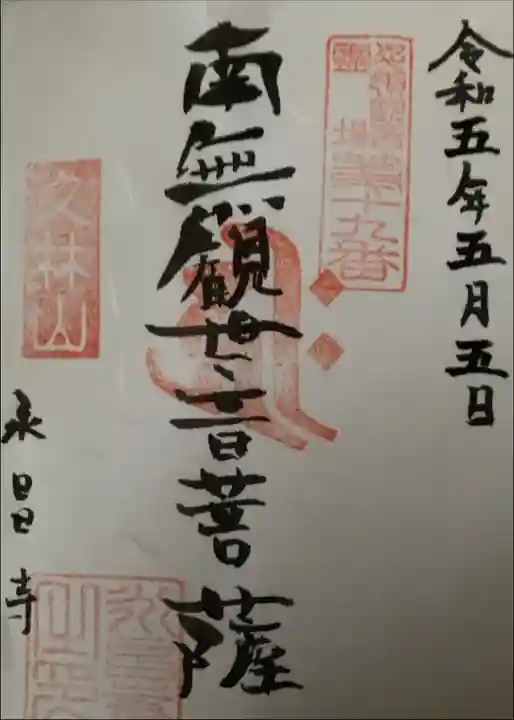 令和五年五月五日
霊場第十九番
南無観世音菩薩
文林山
永昌寺